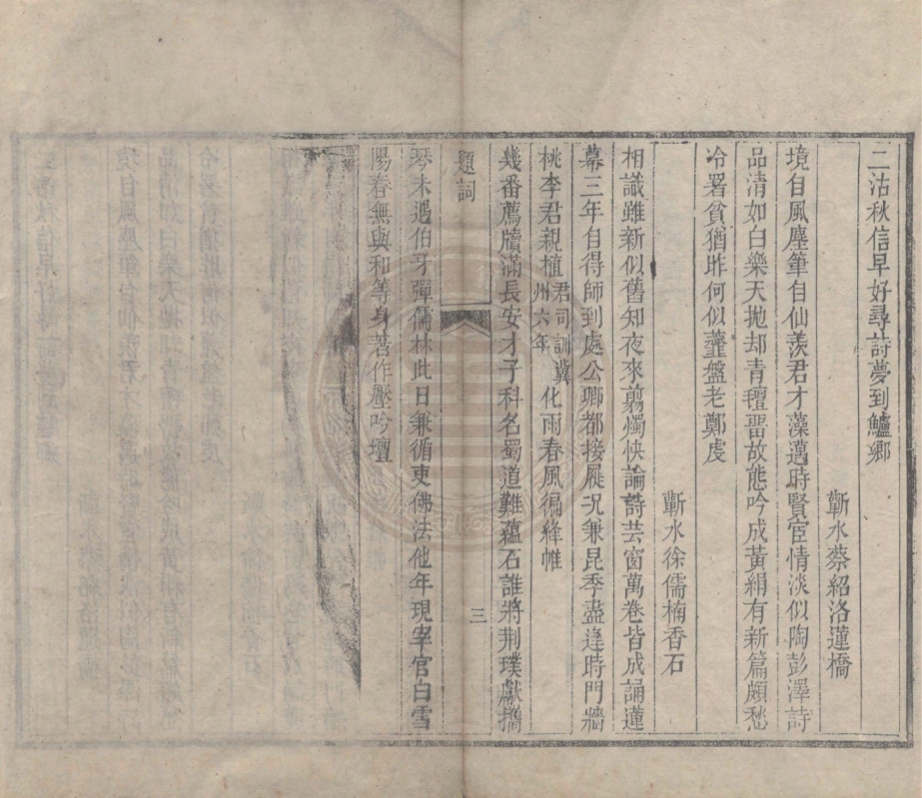 二沽秋信早好尋詩夢到鱸鄉
蘄水蔡紹洛蓮橋
境自風塵筆自仙羨君才藻邁時賢宦情淡似陶彭澤詩
品清如白樂天拋却青氊畱故態吟成黃絹有新篇頗愁
冷署貧猶昨何似虀盤老鄭虔
蘄水徐儒楠香石
相識雖新似舊知夜來翦燭快論詩芸窗萬卷皆成誦蓮
幕三年自得師到處公卿都接屣况兼昆季盡逢時門牆
桃李君親植君司訓冀州六年化雨春風徧絳帷
幾番薦牘滿長安才子科名蜀道難蘊石誰將荆璞獻攜
題詞
三
琴未遇伯牙彈儒林此日兼循吏佛法他年現宰官白雪
陽春無與和等身著作壓吟壇